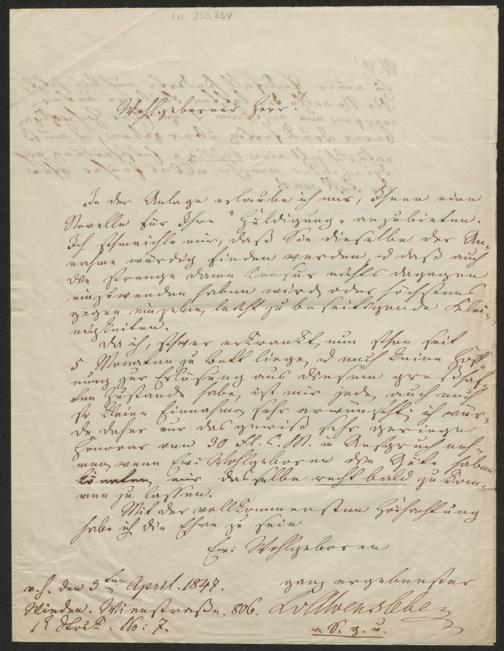 I.N. 253.854
Wohlgeborner Herr!
In der Anlage erlaube ich mir, Ihnen eine
Novelle für Ihre "Huldigung" anzubieten.
Ich schmeichle mir, daß Sie dieselbe der An-
nahme würdig finden werden, u daß auch
die strenge Dame Censur nichts dagegen
einzuwenden haben wird oder höchstens
gegen einzelne, leicht zu beseitigende Kleini-
nigkeiten.
Da ich, schwer erkrankt, nun schon seit
5 Monaten zu Bett liege, u noch keine Hoff-
nung zur Erlösung aus diesem gräßlich-
sten Zustande habe, ist mir jede, auch noch
so kleine Einnahme sehr erwünscht; ich wür-
de daher nur das gewiß sehr geringe
Honorar von 30 Fl. C. M. in Anspruch neh-
men, wenn Eur Wohlgeboren die Güte haben
könnten, mir dasselbe recht bald zukom-
men zu lassen.
Mit der vollkommensten Hochachtung
habe ich die Ehre zu sein
Eur Wohlgeboren
ganz ergebenster
v. H. den 3ten April. 1847.
Wieden. Wienstraße. 806.
1r Stock. No: 7.